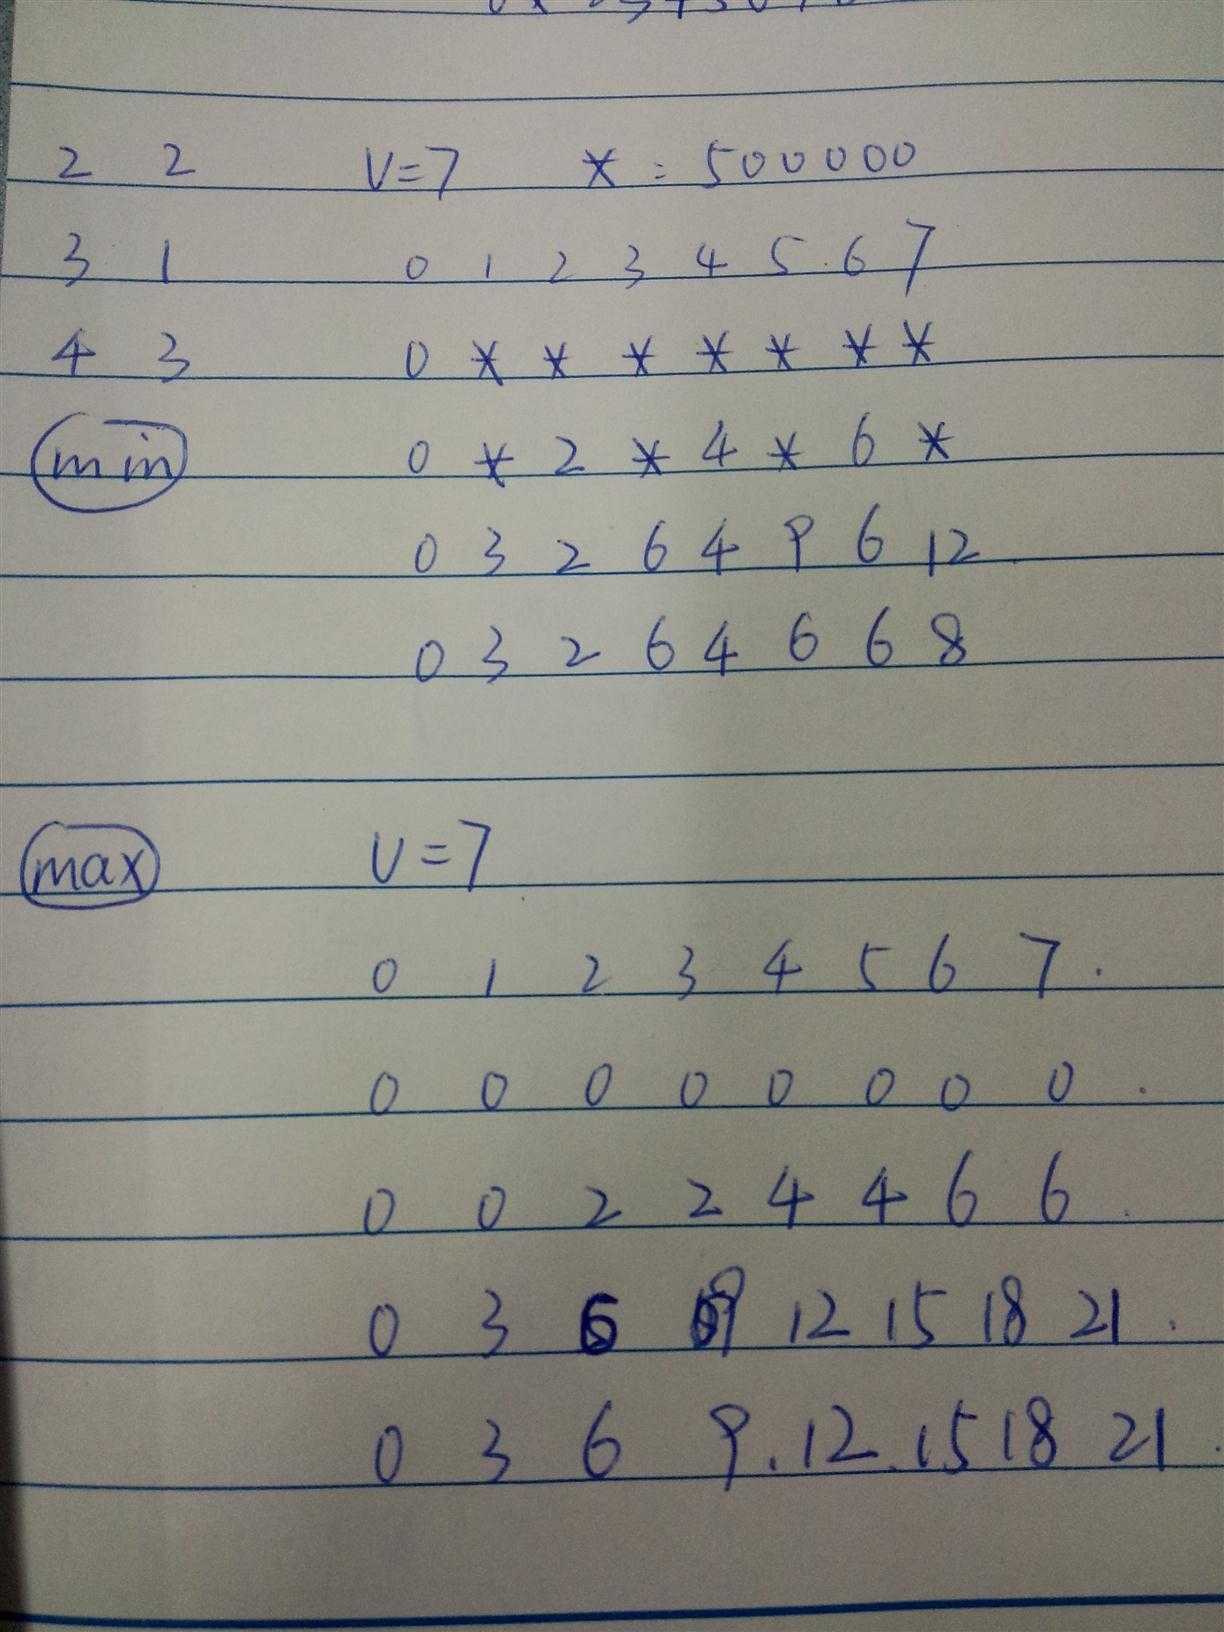 2 2 V=7 * : 500000
3 1 0 1 2 3 4 5 6 7
4 3 0 * * * * * * *
min 0 * 2 * 4 * 6 *
0 3 2 6 4 9 6 12
0 3 2 6 4 6 6 8
max V=7
0 1 2 3 4 5 6 7.
0 0 0 0 0 0 0 0.
0 0 2 2 4 4 6 6.
0 3 6 9 12 15 18 21.
0 3 6 9. 12. 15 18 21.